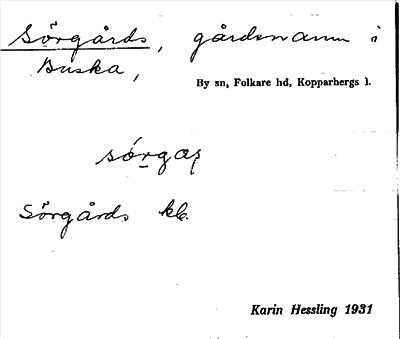 Sörgårds, gårdsnamn i
Buska,
By sn, Folkare hd, Kopparbergs l.
Sörgårds kb.
Karin Hessling 1931